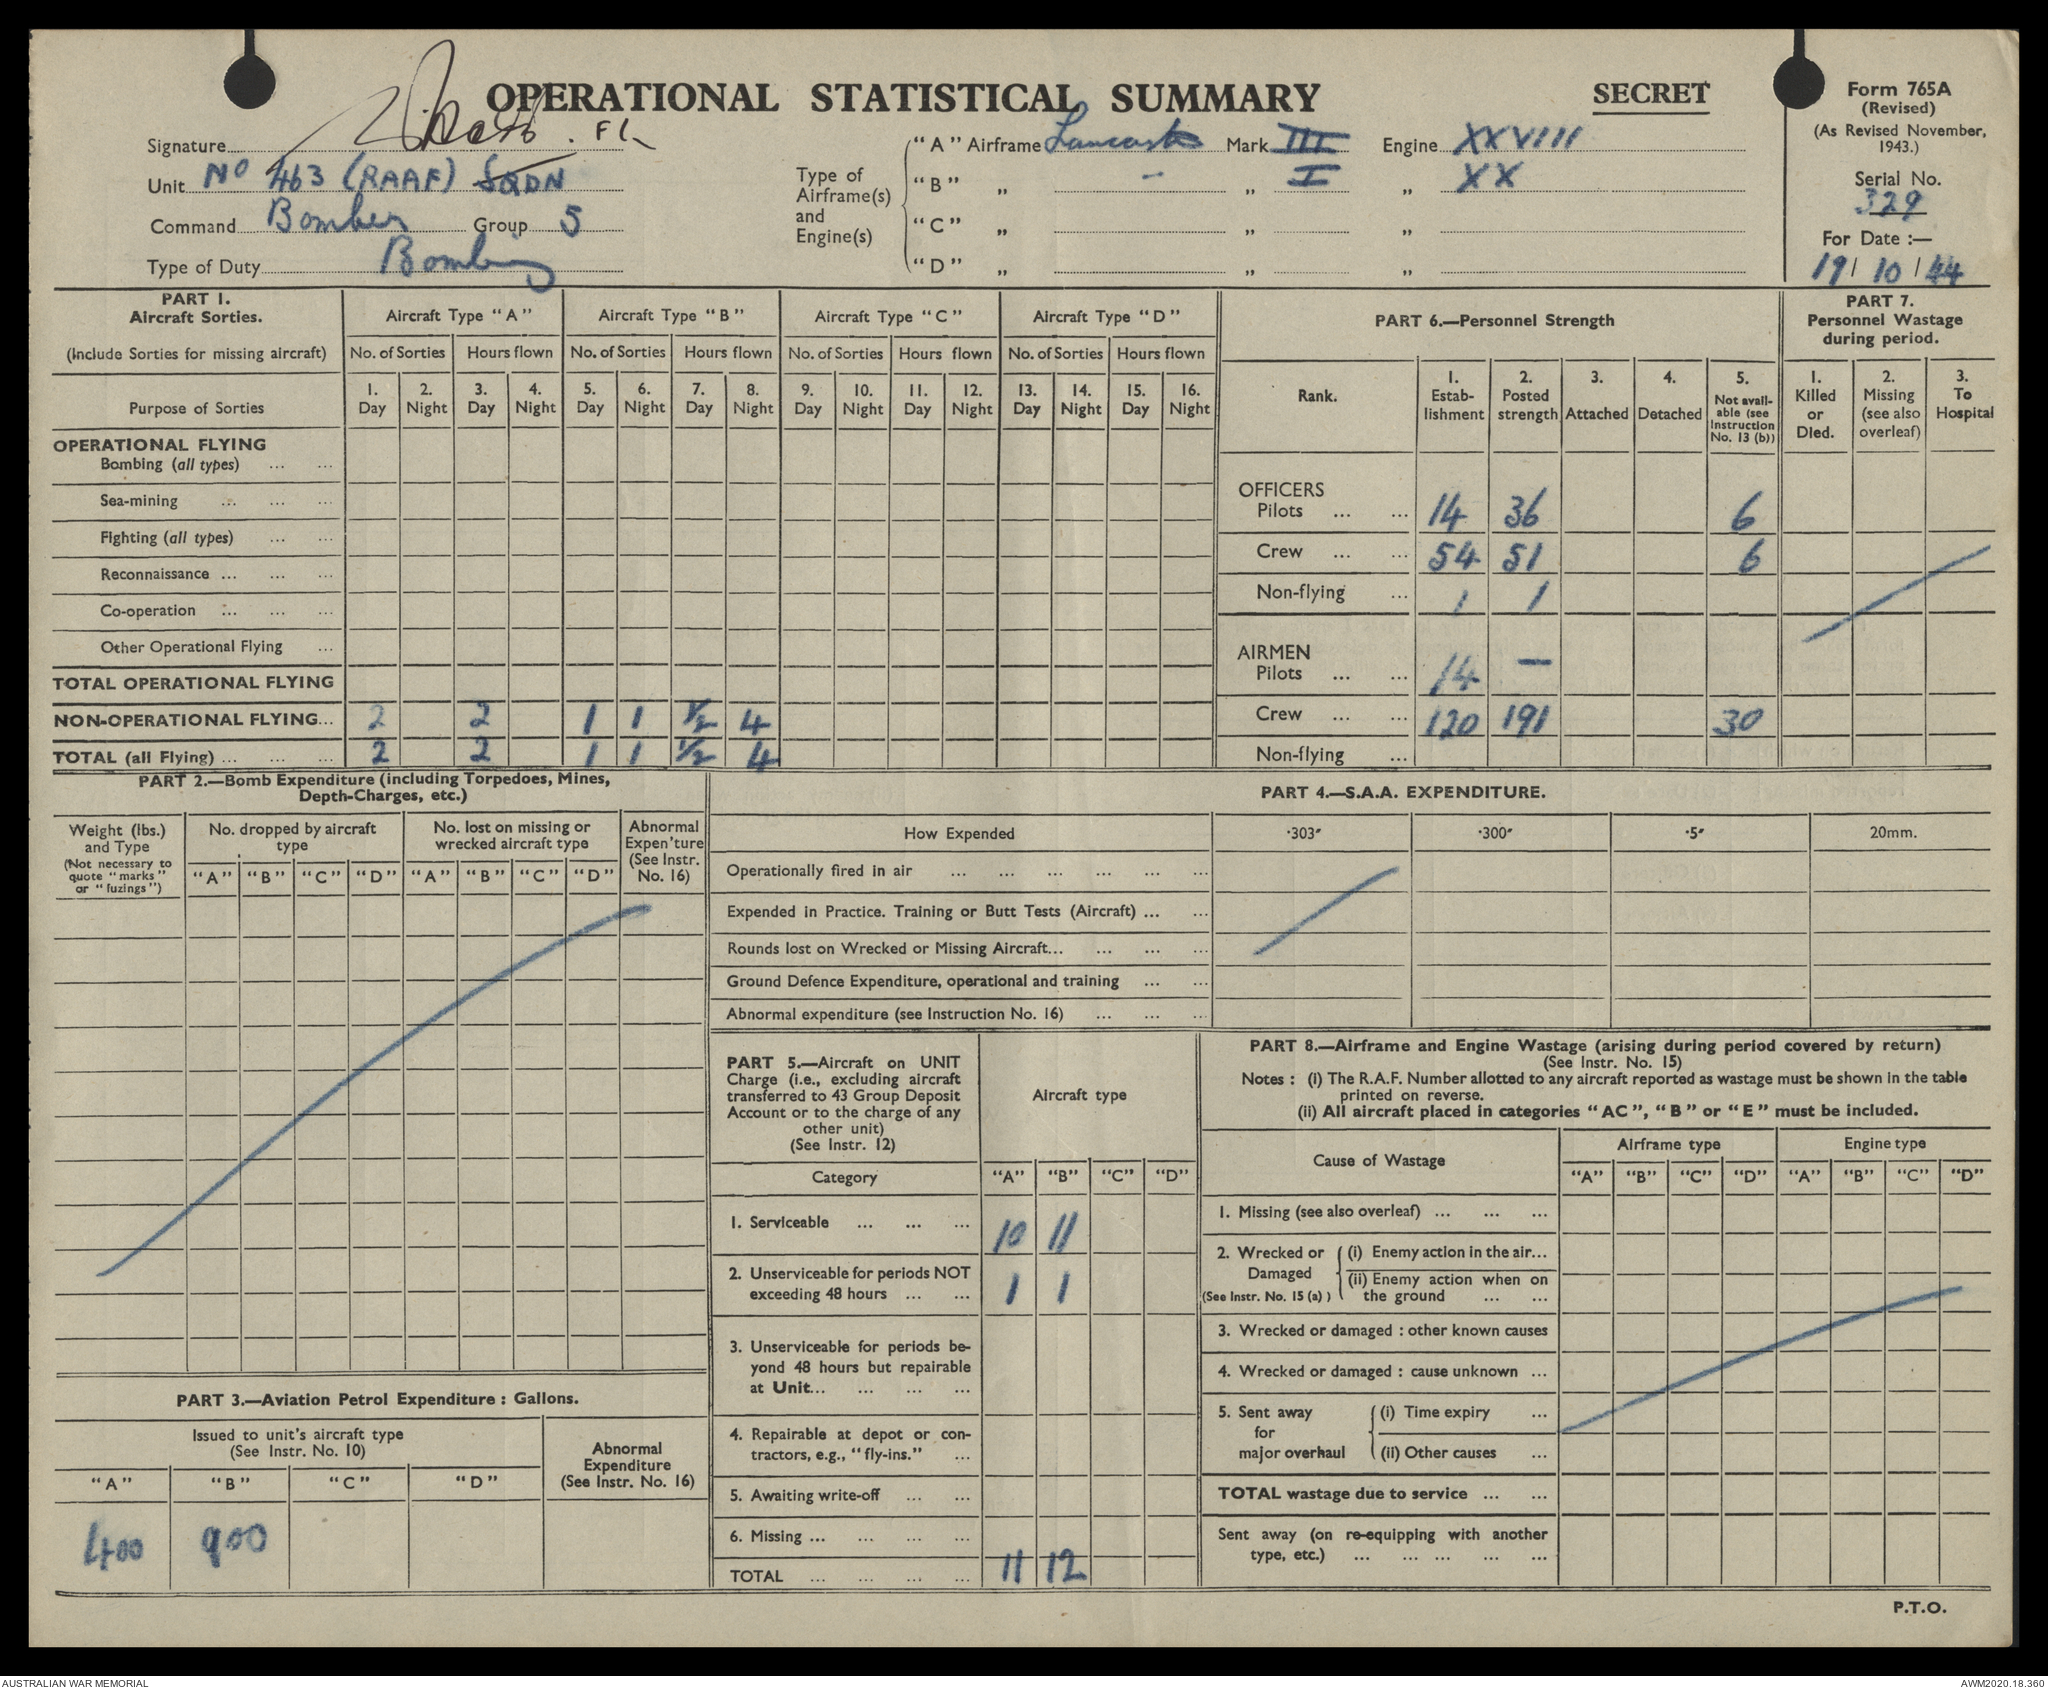 OPERATIONAL STATISTICAL SUMMARY
SECRET
Form 765A
(Revised)
(As Revised November,
1943.)
Serial No.
329
For Date :—
19/ 10 / 44
Signature
Unit No 463 (RAAF) SQDN
Command Bomber Group 5
Type of Duty Bombing
Type of
Airframe(s)
and
Engine(s)
"A" Airframe Lancaster Mark III Engine XXVIII
"B" „ - „ I „ XX
"C" „ „ „
"D" „ „ „
PART 1.
Aircraft Sorties.
(Include Sorties for missing aircraft)
Purpose of Sorties
Aircraft Type "A" Aircraft Type "B" Aircraft Type "C" Aircraft Type "D"
No. of Sorties Hours flown No. of Sorties Hours flown No. of Sorties Hours flown No. of Sorties Hours flown
1. 2. 3. 4. 5. 6. 7. 8. 9. 10. 11. 12. 13. 14. 15. 16.
Day Night Day Night Day Night Day Night Day Night Day Night Day Night Day Night
OPERATIONAL FLYING
Bombing (all types) ... ...
Sea-mining ... ... ...
Fighting (all types) ... ...
Reconnaissance ... ... ...
Co-operation ... ... ...
Other Operational Flying ...
TOTAL OPERATIONAL FLYING
NON-OPERATIONAL FLYING... 2 2 1 1 ½ 4
TOTAL (all Flying) ... ... ... 2 2 1 1 ½ 4
PART 6.—Personnel Strength
Rank.
1. Estab-
lishment
2. Posted
strength
3.
Attached
4.
Detached
5.
Not avail-
able (see
Instruction
No. 13 (b))
OFFICERS
Pilots ... ... 14 36 6
Crew ... ... 54 51 6
Non-flying ... 1 1
AIRMEN
Pilots ... ... 14 —
Crew ... ... 120 191 30
Non-flying ...
PART 7.
Personnel Wastage
during period.
1.
Killed
or
Died.
2.
Missing
(see also
overleaf)
3.
To
Hospital
PART 2.—Bomb Expenditure (including Torpedoes, Mines,
Depth-Charges, etc.)
Weight (lbs.)
and Type
(Not necessary to
quote "marks"
or "fuzings")
No. dropped by aircraft
type
No. lost on missing or
wrecked aircraft type
Abnormal
Expen'ture
(See Instr.
No. 16)
"A" "B" "C" "D" "A" "B" "C" "D"
PART 4.—S.A.A. EXPENDITURE.
How Expended ·303″ ·300″ ·5″ 20mm.
Operationally fired in air ... ... ... ... ... ...
Expended in Practice. Training or Butt Tests (Aircraft) ... ...
Rounds lost on Wrecked or Missing Aircraft... ... ... ...
Ground Defence Expenditure, operational and training ... ...
Abnormal expenditure (see Instruction No. 16) ... ... ...
PART 5.—Aircraft on UNIT
Charge (i.e., excluding aircraft
transferred to 43 Group Deposit
Account or to the charge of any
other unit)
(See Instr. 12)
Aircraft type
Category "A" "B" "C" "D"
1. Serviceable ... ... ... 10 11
2. Unserviceable for periods NOT
exceeding 48 hours ... ... 1 1
3. Unserviceable for periods be-
yond 48 hours but repairable
at Unit... ... ... ...
4. Repairable at depot or con-
tractors, e.g., "fly-ins." ...
5. Awaiting write-off ... ...
6. Missing ... ... ... ...
TOTAL ... ... ... ... 11 12
PART 8.—Airframe and Engine Wastage (arising during period covered by return)
(See Instr. No. 15)
Notes : (i) The R.A.F. Number allotted to any aircraft reported as wastage must be shown in the table
printed on reverse.
(ii) All aircraft placed in categories "AC", "B" or "E" must be included.
Cause of Wastage
Airframe type Engine type
"A" "B" "C" "D" "A" "B" "C" "D"
1. Missing (see also overleaf) ... ... ...
2. Wrecked or (i) Enemy action in the air...
Damaged (ii) Enemy action when on
(See Instr. No. 15 (a) ) the ground ... ...
3. Wrecked or damaged : other known causes
4. Wrecked or damaged : cause unknown ...
5. Sent away (i) Time expiry ...
for
major overhaul (ii) Other causes ...
TOTAL wastage due to service ... ...
Sent away (on re-equipping with another
type, etc.) ... ... ... ... ...
PART 3.—Aviation Petrol Expenditure : Gallons.
Issued to unit's aircraft type
(See Instr. No. 10)
Abnormal
Expenditure
(See Instr. No. 16)
"A" "B" "C" "D"
400 900
P.T.O.
AUSTRALIAN WAR MEMORIAL
AWM2020.18.360